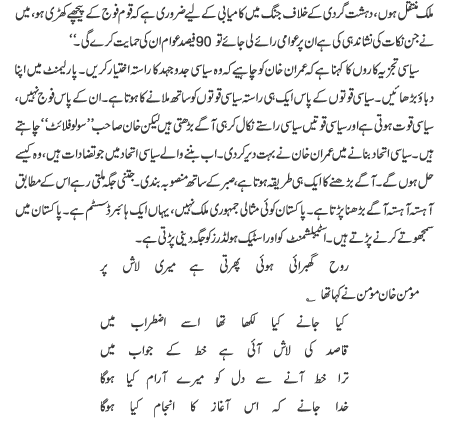 ملک منتقل ہوں، دہشت گردی کے خلاف جنگ میں کامیابی کے لیے ضروری ہے کہ قوم فوج کے پیچھے کھڑی ہو، میں
نے جن نکات کی نشاندہی کی ہے ان پر عوامی رائے لی جائے تو 90 فیصد عوام ان کی حمایت کرے گی۔‘‘
سیاسی تجزیہ کاروں کا کہنا ہے کہ عمران خان کو چاہیے کہ وہ سیاسی جدوجہد کا راستہ اختیار کریں۔ پارلیمنٹ میں اپنا
دباؤ بڑھائیں۔ سیاسی قوتوں کے پاس ایک ہی راستہ سیاسی قوتوں کو ساتھ ملانے کا ہوتا ہے۔ ان کے پاس فوج نہیں،
سیاسی قوت ہوتی ہے اور سیاسی قوتیں سیاسی راستے نکال کر ہی آگے بڑھتی ہیں لیکن خان صاحب ’’سولو فلائٹ‘‘ چاہتے
ہیں۔ سیاسی اتحاد بنانے میں عمران خان نے بہت دیر کر دی۔ اب بننے والے سیاسی اتحاد میں جو تضادات ہیں، وہ کیسے
حل ہوں گے۔ آگے بڑھنے کا ایک ہی طریقہ ہوتا ہے، صبر کے ساتھ منصوبہ بندی۔ جتنی جگہ ملتی رہے اس کے مطابق
آہستہ آہستہ آگے بڑھنا پڑتا ہے۔ پاکستان کوئی مثالی جمہوری ملک نہیں، یہاں ایک ہائبرڈ سسٹم ہے۔ پاکستان میں
سمجھوتے کرنے پڑتے ہیں۔ اسٹیبلشمنٹ کو اور اسٹیک ہولڈرز کو جگہ دینی پڑتی ہے۔
روح گھبرائی ہوئی پھرتی ہے میری لاش پر
مومن خان مومن نے کہا تھا ؎
کیا جانے کیا لکھا تھا اسے اضطراب میں
قاصد کی لاش آئی ہے خط کے جواب میں
ترا خط آنے سے دل کو میرے آرام کیا ہوگا
خدا جانے کہ اس آغاز کا انجام کیا ہوگا